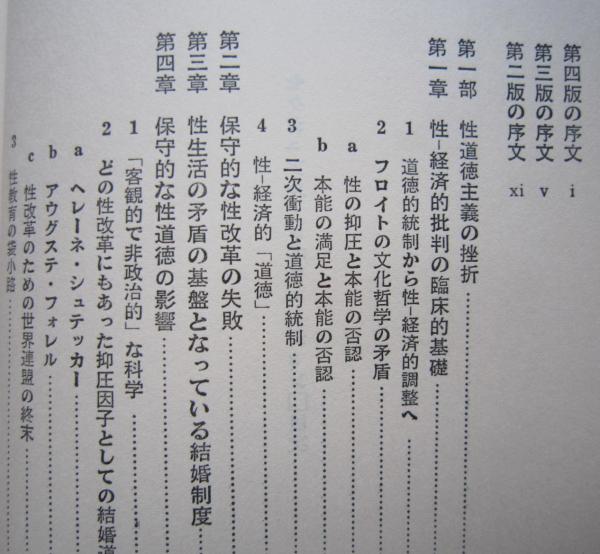 第四版の序文 i
第三版の序文 v
第二版の序文 xi
第一部 性道徳主義の挫折
第一章 性-経済的批判の臨床的基礎
1 道徳的統制から性-経済的調整へ
2 フロイトの文化哲学の矛盾
a 性の抑圧と本能の否認
b 本能の満足と本能の否認
3 二次衝動と道徳的統制
4 性-経済的「道徳」
第二章 保守的な性改革の失敗
第三章 性生活の矛盾の基盤となっている結婚制度
第四章 保守的な性道徳の影響
1 「客観的で非政治的」な科学
2 どの性改革にもあった抑圧因子としての結婚道
a ヘレーネ・シュテッカー
b アウグステ・フォレル
c 性改革のための世界連盟の終末
3 性教育の袋小路